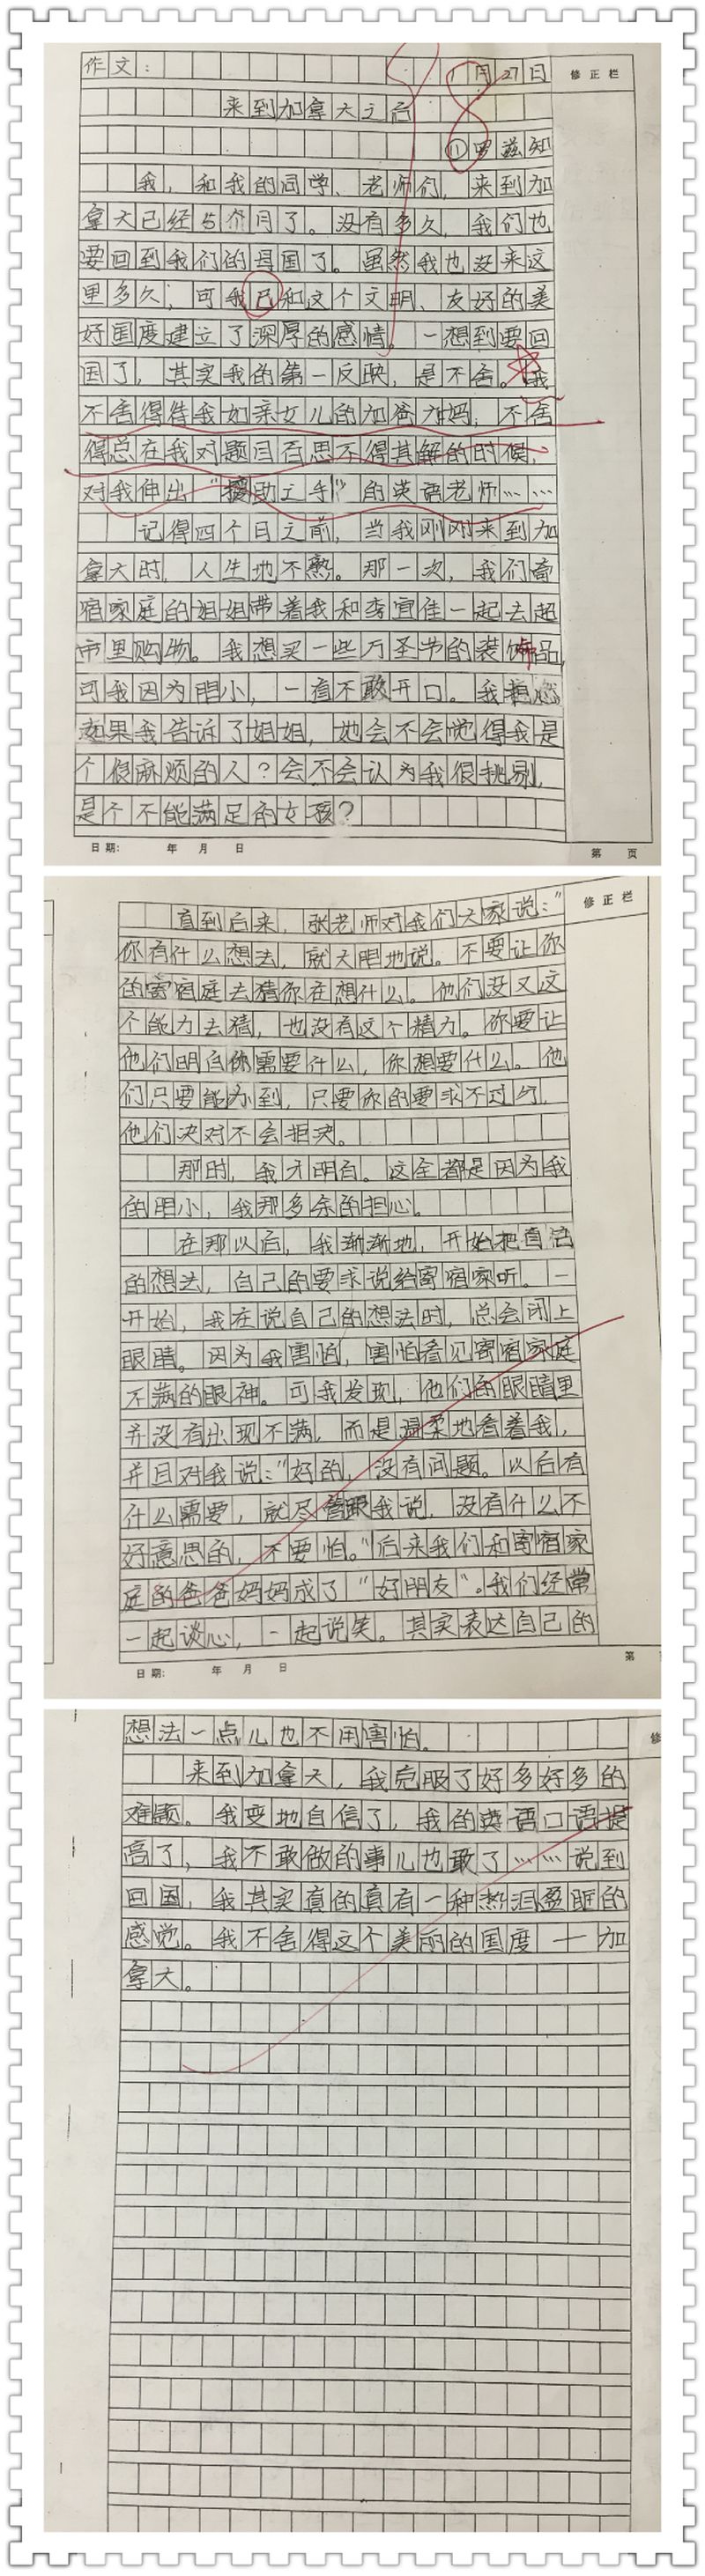 作文： 1月27日 修正栏
来到加拿大之后
⑪罗兹知
我，和我的同学、老师们，来到加
拿大已经5个月了。没有多久，我们也
要回到我们的母国了。虽然我也没来这
里多久，可我已和这个文明、友好的美
好国度建立了深厚的感情。一想到要回
国了，其实我的第一反映，是不舍。我
不舍得待我如亲女儿的加爸加妈；不舍
得总在我对题目百思不得其解的时候，
对我伸出“援助之手”的英语老师……
记得四个月之前，当我刚刚来到加
拿大时，人生地不熟。那一次，我们寄
宿家庭的姐姐带着我和李宜佳一起去超
市里购物。我想买一些万圣节的装饰品，
可我因为胆小，一直不敢开口。我想
如果我告诉了姐姐，她会不会觉得我是
个很麻烦的人？会不会认为我很挑剔，
是个不能满足的女孩？
日期： 年 月 日 第 页
修正栏
直到后来，张老师对我们大家说：“
你有什么想法，就大胆地说。不要让你
的寄宿庭去猜你在想什么。他们没又这
个能力去猜，也没有这个精力。你要让
他们明白你需要什么，你想要什么。他
们只要能办到，只要你的要求不过分，
他们决对不会拒决。
那时，我才明白。这全都是因为我
的胆小，我那多余的担心。
在那以后，我渐渐地，开始把自己
的想法，自己的要求说给寄宿家听。一
开始，我在说自己的想法时，总会闭上
眼睛。因为我害怕，害怕看见寄宿家庭
不满的眼神。可我发现，他们的眼睛里
并没有出现不满，而是温柔地看着我，
并且对我说：“好的，没有问题。以后有
什么需要，就尽管跟我说，没有什么不
好意思的，不要怕。”后来我们和寄宿家
庭的爸爸妈妈成了“好朋友”。我们经常
一起谈心，一起说笑。其实表达自己的
日期： 年 月 日 第
想法一点儿也不用害怕。
修
来到加拿大，我克服了好多好多的
难题。我变地自信了，我的英语口语提
高了，我不敢做的事儿也敢了……说到
回国，我其实真的真有一种热泪盈眶的
感觉。我不舍得这个美丽的国度——加
拿大。